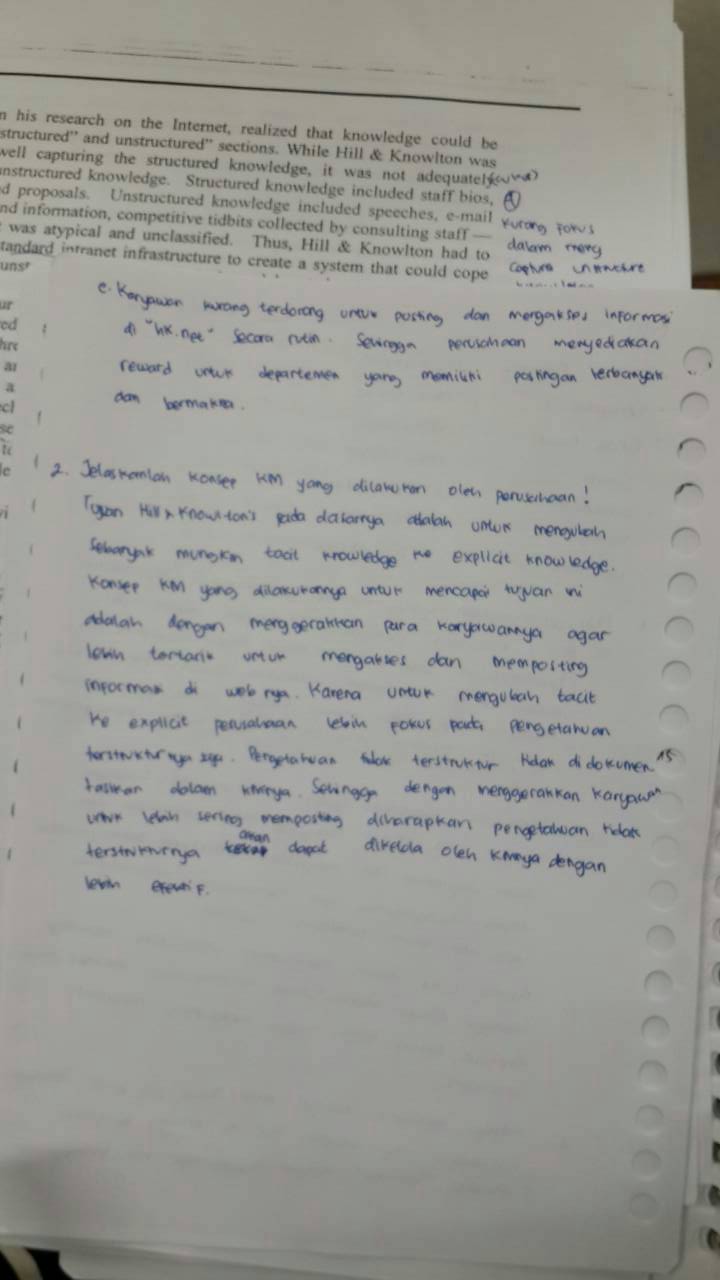 n his research on the Internet, realized that knowledge could be
structured" and unstructured" sections. While Hill & Knowlton was
well capturing the structured knowledge, it was not adequately
unstructured knowledge. Structured knowledge included staff bios,
d proposals. Unstructured knowledge included speeches, e-mail
nd information, competitive tidbits collected by consulting staff —
was atypical and unclassified. Thus, Hill & Knowlton had to
tandard intranet infrastructure to create a system that could cope
kurang fokus
dalam meng
capture unstructure
e. Karyawan kurang terdorong untuk posting dan mengakses informasi
di "hk.net" secara rutin. Sehingga perusahaan menyediakan
reward untuk departemen yang memiliki postingan terbanyak
dan bermakna.
2. Jelaskanlah konsep KM yang dilakukan oleh perusahaan!
Tujuan Hill & Knowlton's pada dasarnya adalah untuk mengubah
sebanyak mungkin tacit knowledge ke explicit knowledge.
Konsep KM yang dilakukannya untuk mencapai tujuan ini
adalah dengan menggerakkan para karyawannya agar
lebih tertarik untuk mengakses dan memposting
informasi di web nya. Karena untuk mengubah tacit
ke explicit perusahaan lebih fokus pada pengetahuan
terstrukturnya saja. Pengetahuan tidak terstruktur tidak didokumen
tasikan dalam kmnya. Sehingga dengan menggerakkan karyawan
untuk lebih sering memposting diharapkan pengetahuan tidak
terstrukturnya akan dapat dikelola oleh kmnya dengan
lebih efektif.